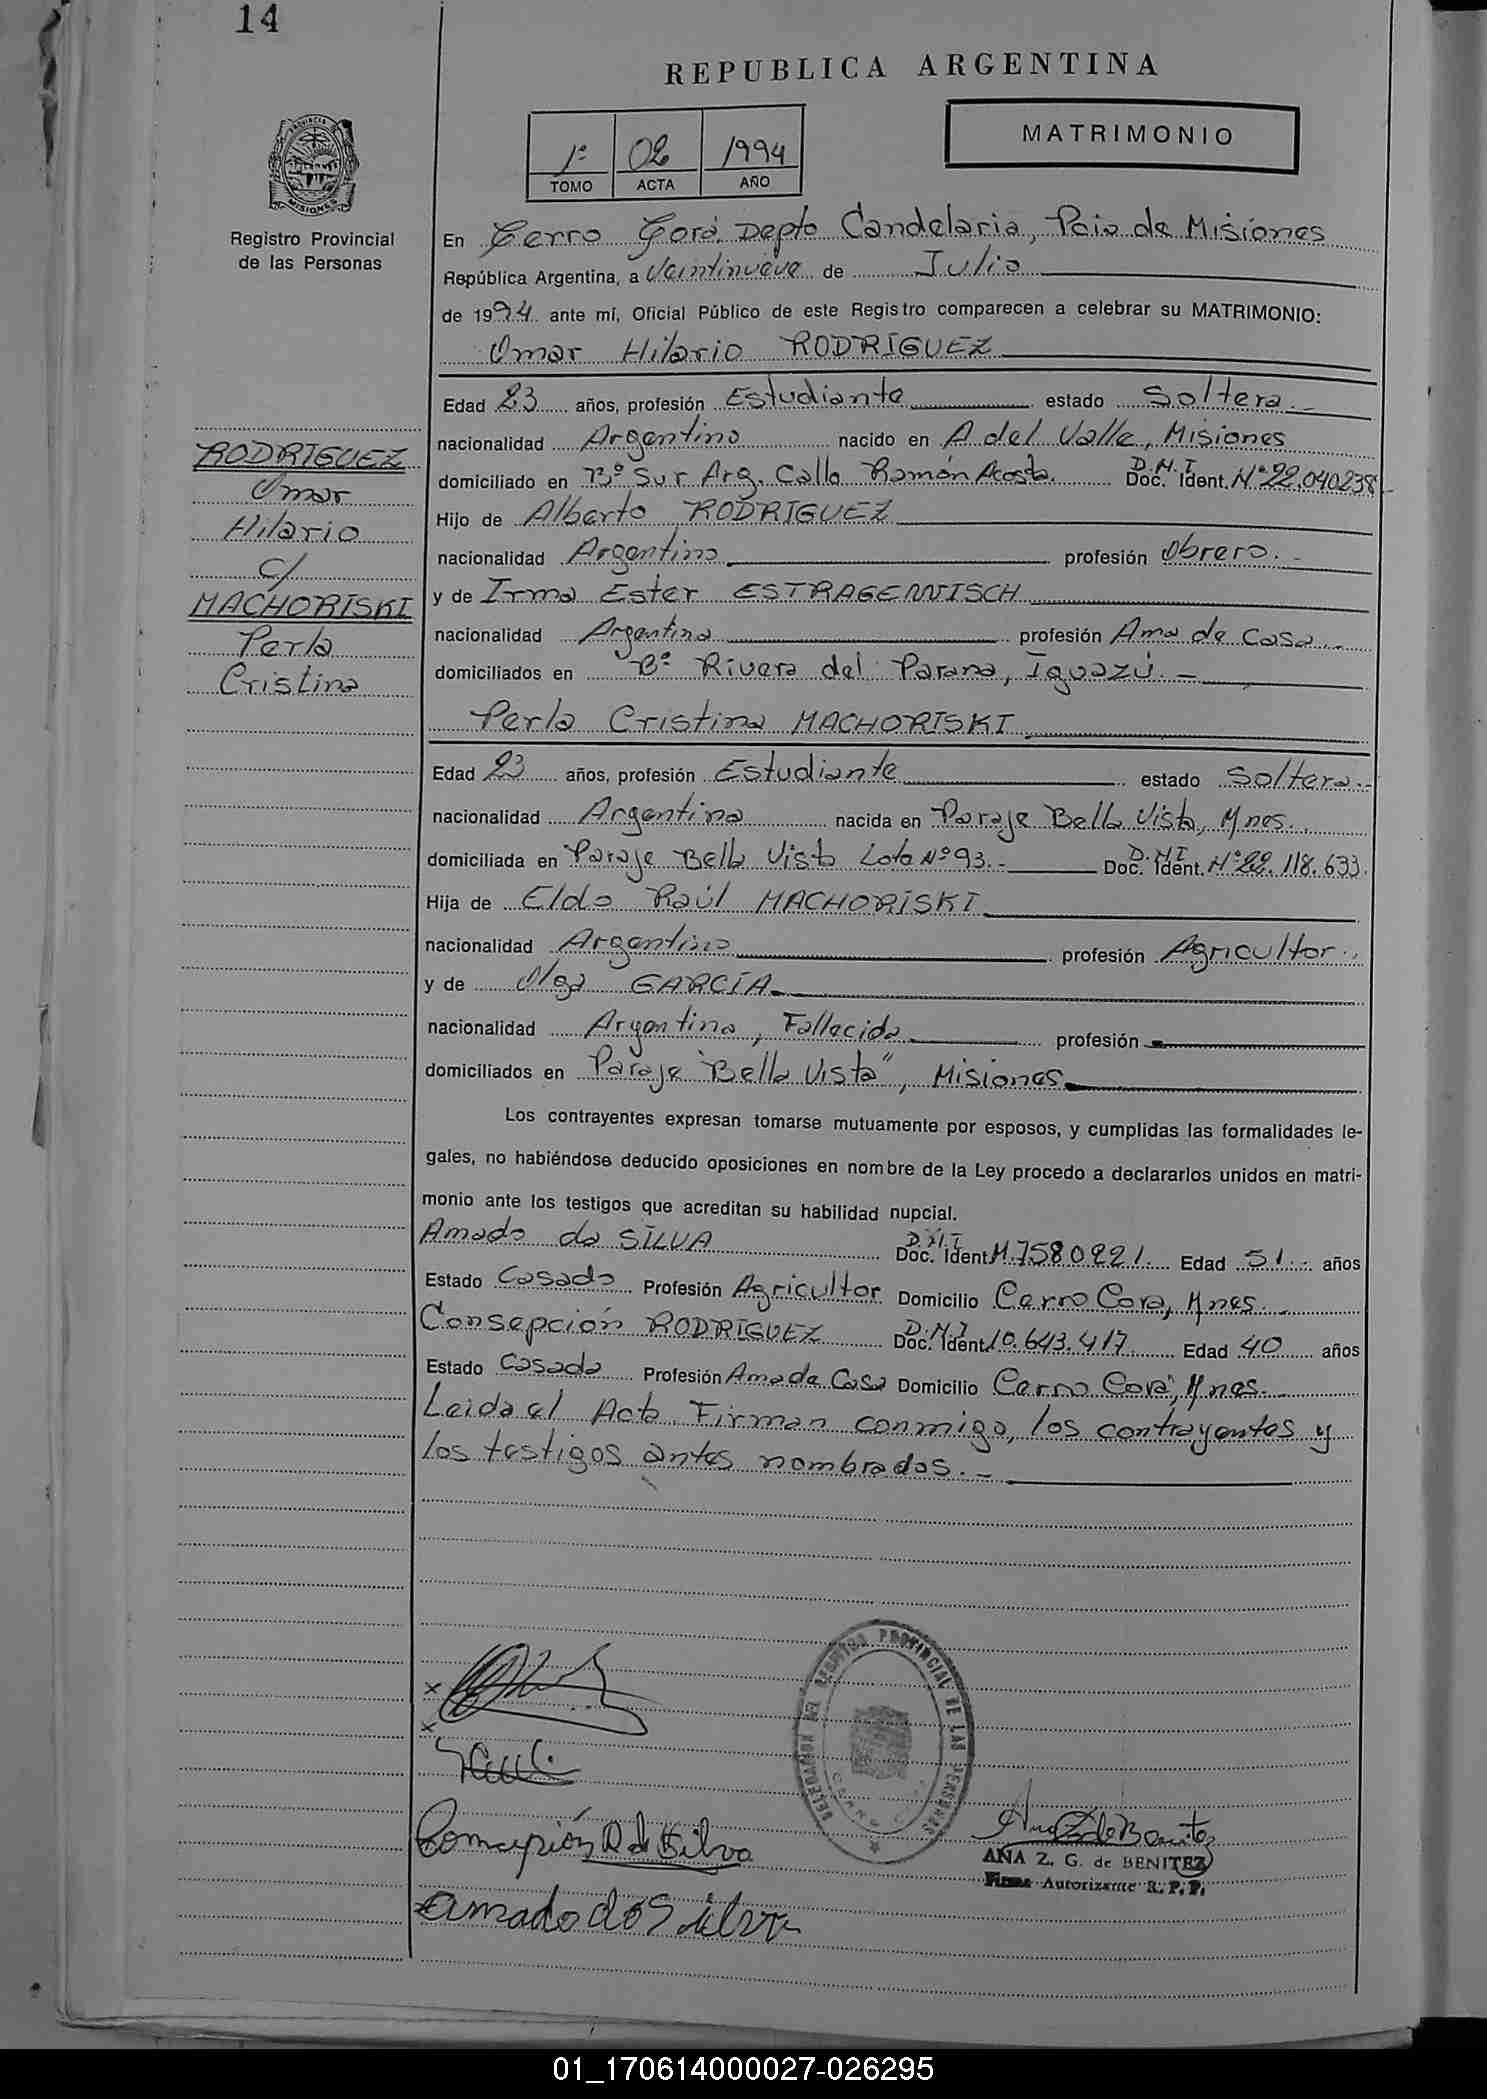 14
REPUBLICA ARGENTINA
MATRIMONIO
1º 02 1994
TOMO ACTA AÑO
PROVINCIA DE
MISIONES
Registro Provincial
de las Personas
En Cerro Corá, Depto Candelaria, Pcia de Misiones
República Argentina, a Veintinueve de Julio
de 1994 ante mí, Oficial Público de este Registro comparecen a celebrar su MATRIMONIO:
Omar Hilario RODRIGUEZ
Edad 23 años, profesión Estudiante estado Soltera.-
nacionalidad Argentino nacido en A del Valle, Misiones
domiciliado en Bº Sur Arg. Calle Ramón Acosta. D.N.I Doc. Ident. Nº 22.040238-
Hijo de Alberto RODRIGUEZ
nacionalidad Argentino profesión Obrero.-
y de Irma Ester ESTRAGENNISCH
nacionalidad Argentina profesión Ama de Casa.-
domiciliados en Bº Rivera del Parana, Iguazú.-
Perla Cristina MACHORISKI
Edad 23 años, profesión Estudiante estado Soltera.-
nacionalidad Argentina nacida en Paraje Bella Vista, Mnes.
domiciliada en Paraje Bella Vista Lote Nº 93.- D.N.I Doc. Ident. Nº 22.118.633.
Hija de Eldo Raúl MACHORISKI
nacionalidad Argentino profesión Agricultor.
y de Olga GARCÍA
nacionalidad Argentina, Fallecida profesión
domiciliados en Paraje "Bella Vista", Misiones
Los contrayentes expresan tomarse mutuamente por esposos, y cumplidas las formalidades le-
gales, no habiéndose deducido oposiciones en nombre de la Ley procedo a declararlos unidos en matri-
monio ante los testigos que acreditan su habilidad nupcial.
Amado da SILVA D.N.I Doc. Ident. M.7580221. Edad 51.- años
Estado Casado Profesión Agricultor Domicilio Cerro Cora, Mnes.-
Consepción RODRIGUEZ D.N.I Doc. Ident. 10.643.417 Edad 40 años
Estado Casada Profesión Ama de Casa Domicilio Cerro Corá, Mnes.-
Leida el Acta Firman conmigo, los contrayentes y
los testigos antes nombrados.-
RODRIGUEZ
Omar
Hilario
c/
MACHORISKI
Perla
Cristina
x
x
DELEGACION DEL REGISTRO PROVINCIAL DE LAS PERSONAS
Concepción R de Silva
Amado do Silva
Ana Z de Benitez
ANA Z. G. de BENITEZ
Firma Autorizante R. P. P.
01_170614000027-026295